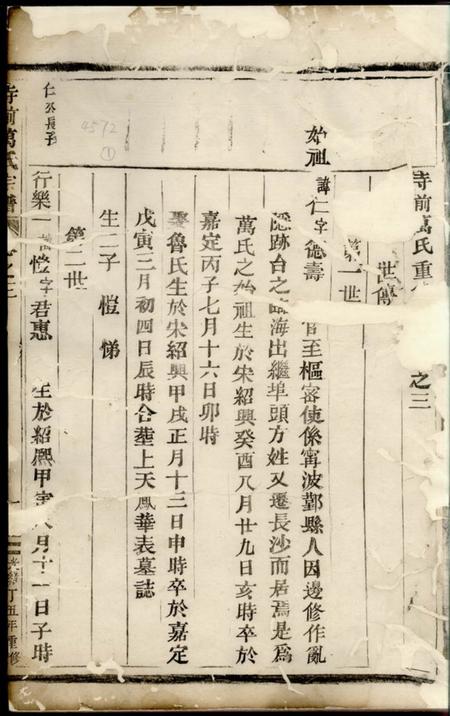 寺前萬氏重
之三
世傳
第一世
始祖諱仁字德壽
官至樞密使係寧波鄞縣人因邊修作亂
隱跡台之臨海出繼埠頭方姓又遷長沙而居焉是爲
萬氏之始祖生於宋紹興癸酉八月廿九日亥時卒於
嘉定丙子七月十六日卯時
娶魯氏生於宋紹興甲戌正月十三日申時卒於嘉定
戊寅三月初四日辰時合塟上天鳳華表墓誌
生二子 愷 悌
第二世
仁公長子
行樂一諱愷字君惠 生於紹熙甲寅八月十一日子時
寺前萬氏宗譜
丁丑年重修
4572
①